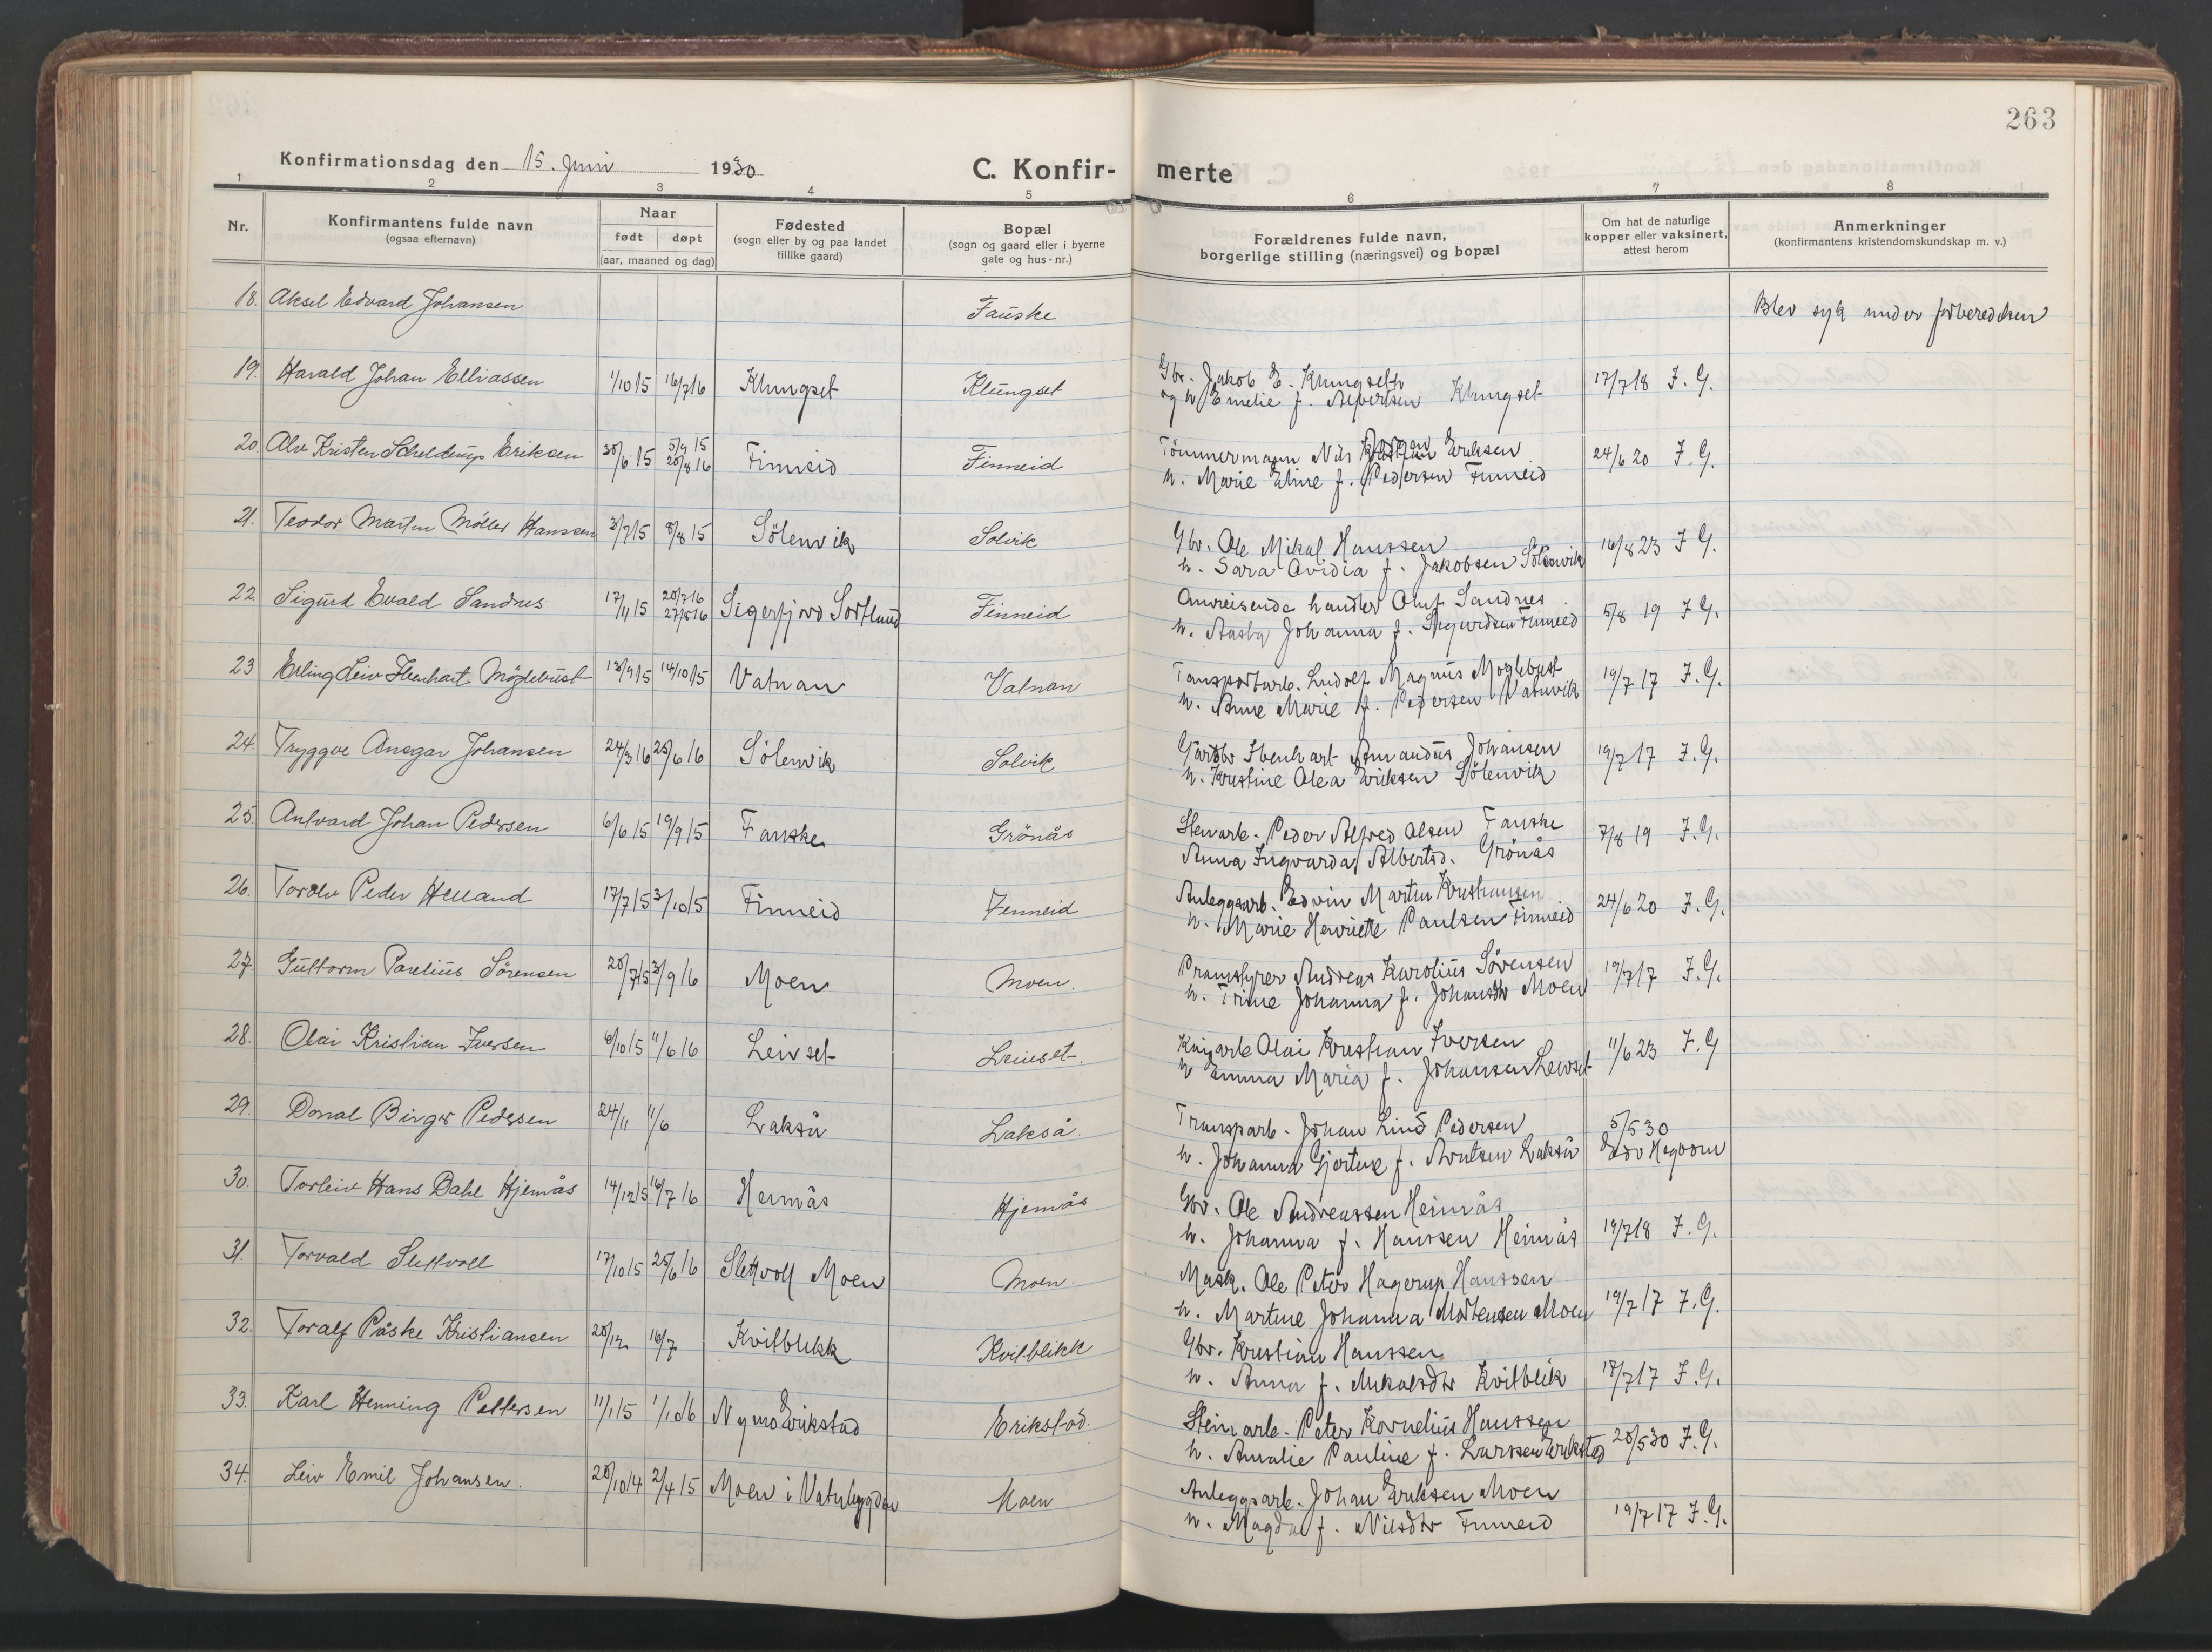 263
Konfirmationsdag den 15. Juni 1930
C. Konfir-merte
1 2 3 4 5 6 7 8
Nr.
Konfirmantens fulde navn
(ogsaa efternavn)
Naar
født døpt
(aar, maaned og dag)
Fødested
(sogn eller by og paa landet
tillike gaard)
Bopæl
(sogn og gaard eller i byerne
gate og hus-nr.)
Forældrenes fulde navn,
borgerlige stilling (næringsvei) og bopæl
Om hat de naturlige
kopper eller vaksinert,
attest herom
Anmerkninger
(konfirmantens kristendomskundskap m. v.)
18. Aksel Edvard Johansen Fauske Blev syk under forberedelsen
19. Harald Johan Elliassen 1/10 15 16/7 16 Klungset Klungset Gbr. Jakob E. Klungseth 17/7 18 J. G.
og h. Emelie f. Albertsen Klungset
20. Alv Kristen Scheldrup Eriksen 30/6 15 5/9 15 Finneid Finneid Tömmermann Nils Eriksen 24/6 20 J. G.
20/8 16 h. Marie Eline f. Pedersen Finneid
21. Teodor Martin Möller Hanssen 3/7 15 8/8 15 Sölenvik Solvik Gbr. Ole Mikal Hanssen 16/8 23 J G.
h. Sara Ovidia f. Jakobsen Sölenvik
22 Sigurd Evald Sandnes 17/11 15 20/7 16 Sigerfjord Sortland Finneid Omreisende handler Oluf Sandnes 5/8 19 J G.
27/8 16 h. Aasta Johanna f. Sigurdsen Finneid
23 Erling Leiv Ibenhart Möglebust 13/9 15 14/10 15 Vatnan Valnan Tansportarb. Ludolf Magnus Moglebust 19/7 17 J. G.
h. Anne Marie f. Pedersen Vatnvik
24. Tryggve Ansgar Johansen 24/3 16 25/6 16 Sölenvik Solvik Gardbr Ibenhart Amandus Johansen 19/7 17 J. G.
h. Kristine Olea Eriksen Sölenvik
25. Antvard Johan Pedersen 6/6 15 19/9 15 Fauske Grönås Stenarb. Peder Alfred Olsen Fauske 7/8 19 J. G.
Anna Ingvarda Albertsd. Grönås
26. Torolv Peder Helland 17/7 15 3/10 15 Finneid Fenneid Anleggsarb. Edvin Martin Kristiansen 24/6 20 J. G.
h. Marie Henriette Paulsen Finneid
27. Guttorm Parelius Sörensen 20/7 15 3/9 16 Moen Moen. Pramstyrer Andreas Karolius Sørensen 19/7 17 J. G.
h. Trine Johanna f. Johansdtr Moen
28. Olai Kristian Iversen 6/10 15 11/6 16 Leivset Leiuset. Kaiarb Olai Kristian Iversen 11/6 23 J. G
h Emma Maria f. Johansen Leivset
29. Donal Birger Pedersen 24/11 11/6 Lakså Lakså. Transparb. Johan Lind Pedersen 5/5 30
h. Johanna Gjertine f. Arntsen Lakså
30. Torleiv Hans Dahl Hjemås 14/12 15 16/7 16 Heimås Hjemås Gbr. Ole Andreassen Heimås 19/7 18 J. G.
h. Johanna f. Hanssen Heimås
31. Torvald Slettvoll 17/10 15 25/6 16 Slettvoll Moen Moen. Mask. Ole Peter Hagerup Hanssen 19/7 17 J. G.
h. Martine Johanna Mortensen Moen
32. Toralf Påske Kristiansen 20/12 16/7 Kvitblikk Kvitblikk Gbr. Kristian Hanssen 17/7 17 J. G.
h. Anna f. Mikalsdtr Kvitblik
33. Karl Henning Pettersen 11/1 15 1/10 6 Nymo Erikstad Erikstad. Steinarb. Peter Kornelius Hanssen 20/5 30 J. G.
h. Amalie Pauline f. Larssen Erikstad
34. Leiv Emil Johansen. 20/10 14 2/4 15 Moen i Vatnbygden Moen Anleggsarb. Johan Eriksen Moen 19/7 17 J. G.
h. Magda f. Nilsdtr Finneid